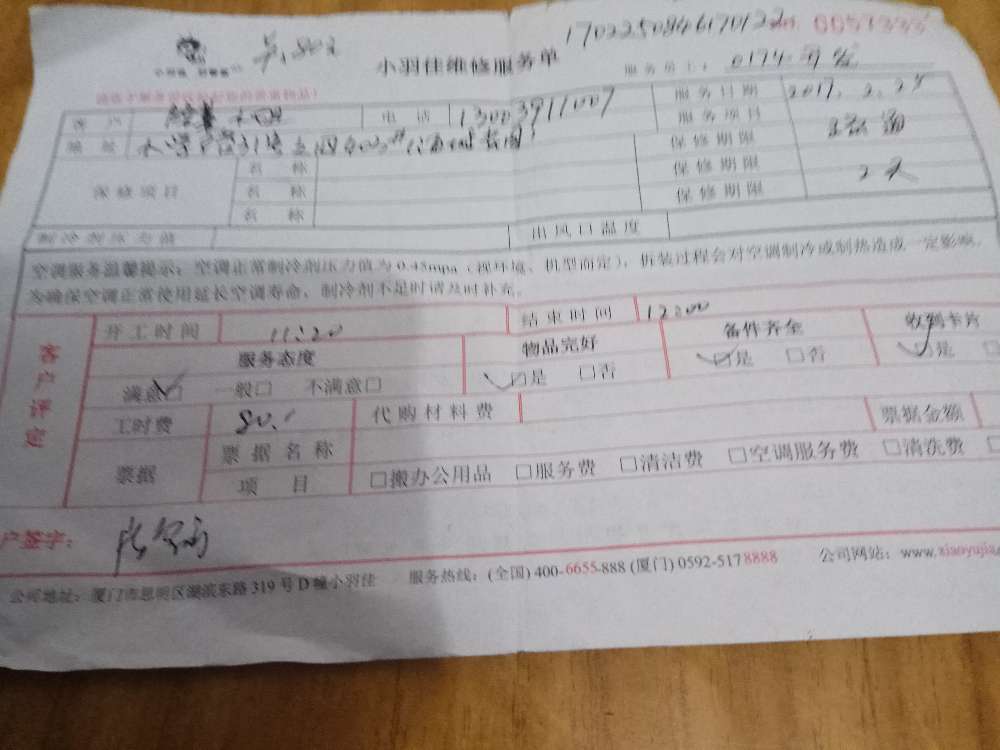 小羽佳维修服务单 No. 0051333
服务员工: 0174
客户 电话 13003911007 服务日期 2017.2.25
地址 服务项目
保修项目 名称 保修期限
名称 保修期限 2天
名称 保修期限
制冷剂压力值 出风口温度
空调服务温馨提示:空调正常制冷剂压力值为0.45mpa(视环境、机型而定),拆装过程会对空调制冷或制热造成一定影响。
为确保空调正常使用延长空调寿命,制冷剂不足时请及时补充。
客户评定
开工时间 11:20 结束时间 12:00
服务态度 物品完好 备件齐全 收到卡片
满意☑ 一般□ 不满意□ ☑是 □否 ☑是 □否 ☑是 □
工时费 80. 代购材料费 票据金额
票据 票据名称
项目 □搬办公用品 □服务费 □清洁费 □空调服务费 □清洗费 □
户签字:
公司地址:厦门市思明区湖滨东路319号D幢小羽佳 服务热线:(全国) 400-6655-888 (厦门) 0592-5178888 公司网站:www.xiaoyujia.